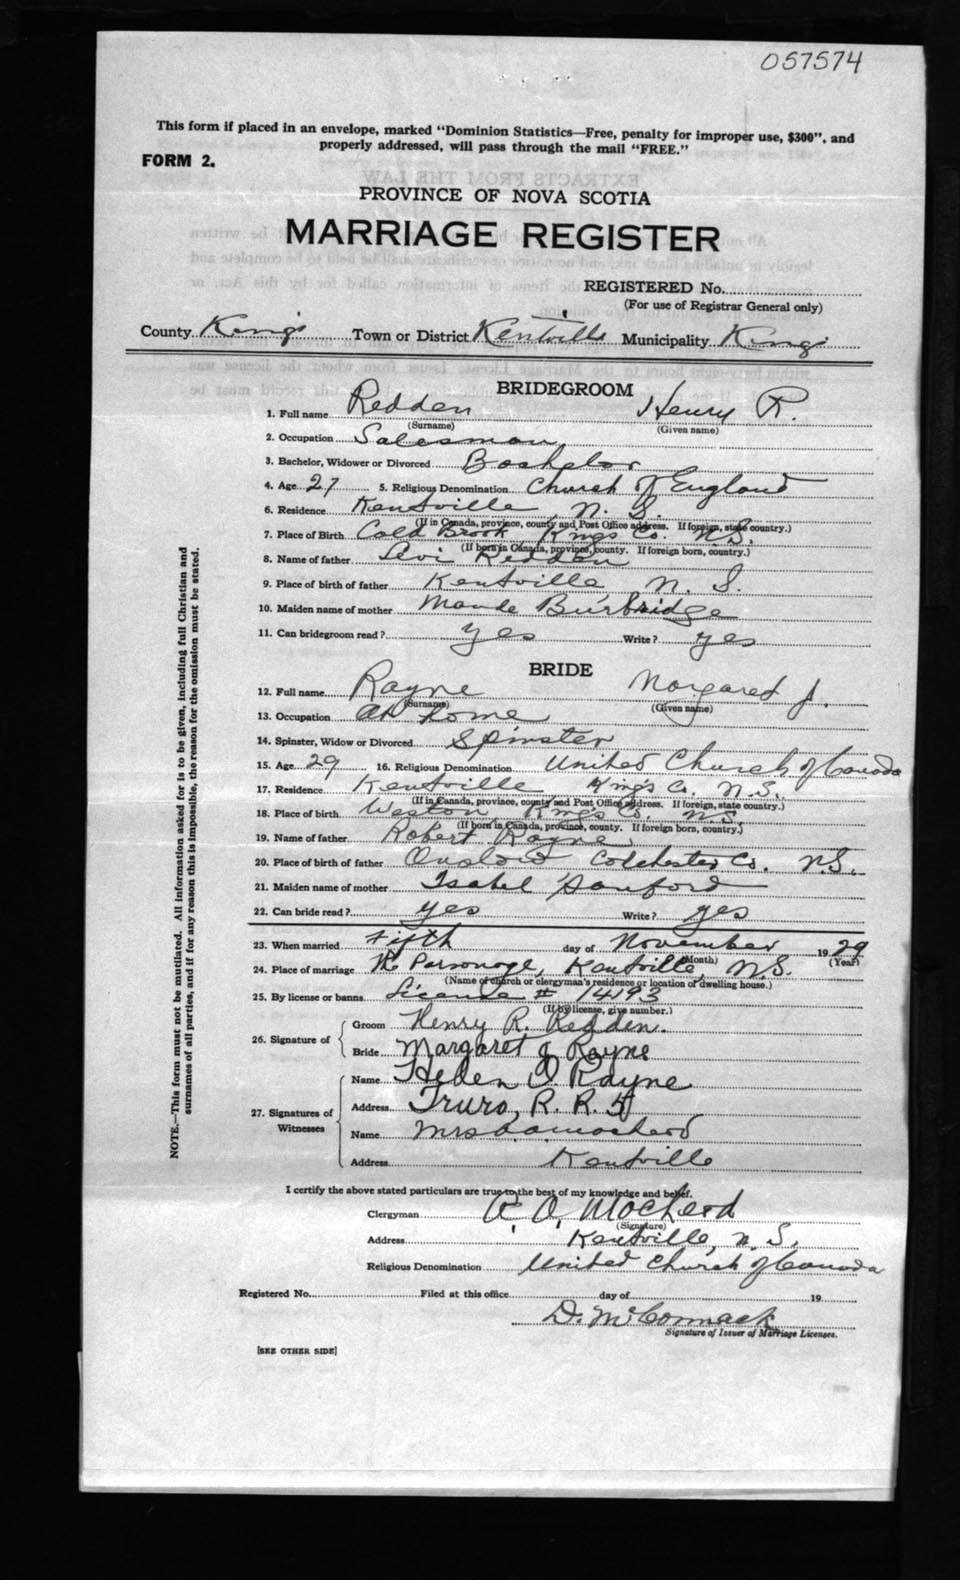 057574
This form if placed in an envelope, marked "Dominion Statistics—Free, penalty for improper use, $300", and
properly addressed, will pass through the mail "FREE."
FORM 2.
PROVINCE OF NOVA SCOTIA
MARRIAGE REGISTER
REGISTERED No.
(For use of Registrar General only)
County Kings Town or District Kentville Municipality Kings
BRIDEGROOM
1. Full name Redden Henry R.
(Surname) (Given name)
2. Occupation Salesman
3. Bachelor, Widower or Divorced Bachelor
4. Age 27 5. Religious Denomination Church of England
6. Residence Kentville N. S.
(If in Canada, province, county and Post Office address. If foreign, state country.)
7. Place of Birth Cold Brook Kings Co. N.S.
(If born in Canada, province, county. If foreign born, country.)
8. Name of father Levi Redden
9. Place of birth of father Kentville N. S.
10. Maiden name of mother Maude Burbridge
11. Can bridegroom read? yes Write? yes
BRIDE
12. Full name Rayne Margaret J.
(Surname) (Given name)
13. Occupation At home
14. Spinster, Widow or Divorced Spinster
15. Age 29 16. Religious Denomination United Church of Canada
17. Residence Kentville King's Co. N.S.
(If in Canada, province, county and Post Office address. If foreign, state country.)
18. Place of birth Weston, King's Co. N.S.
(If born in Canada, province, county. If foreign born, country.)
19. Name of father Robert Rayne
20. Place of birth of father Onslow Colchester Co. N.S.
21. Maiden name of mother Isabel Sanford
22. Can bride read? yes Write? yes
23. When married Fifth day of November 1929
(Month) (Year)
24. Place of marriage The Parsonage, Kentville, N.S.
(Name of church or clergyman's residence or location of dwelling house.)
25. By license or banns License # 14193
(If by license, give number.)
26. Signature of Groom Henry R. Redden.
Bride Margaret J Rayne
27. Signatures of Witnesses Name Helen I. Rayne
Address Truro, R. R. 4
Name Mrs
Address Kentville
I certify the above stated particulars are true to the best of my knowledge and belief.
Clergyman R. O.
(Signature)
Address Kentville, N. S.
Religious Denomination United Church of Canada
Registered No. Filed at this office day of 19
D. McCormack
Signature of Issuer of Marriage Licenses.
[SEE OTHER SIDE]
NOTE.—This form must not be mutilated. All information asked for is to be given, including full Christian and
surnames of all parties, and if for any reason this is impossible, the reason for the omission must be stated.